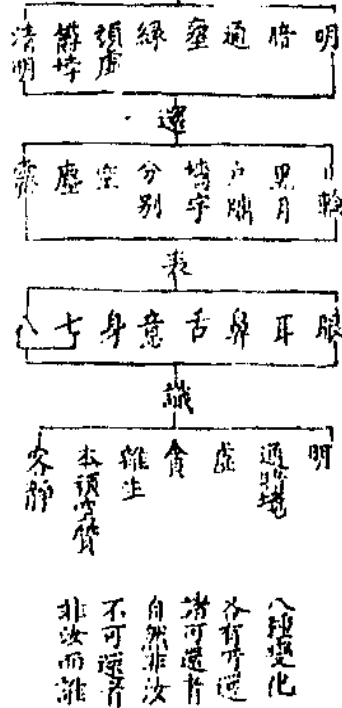 明
暗
通
壅
緣
頑虛
欝𡋯
清明
還
日輪
黑月
戶牖
墻宇
分別
空
塵
霽
表
眼
耳
鼻
舌
意
身
七
八
識
明
通暗
虛
貪
生
本頑質
靜
八種變化
各有所還
諸可還者
自然非汝
不可還者
非汝而誰